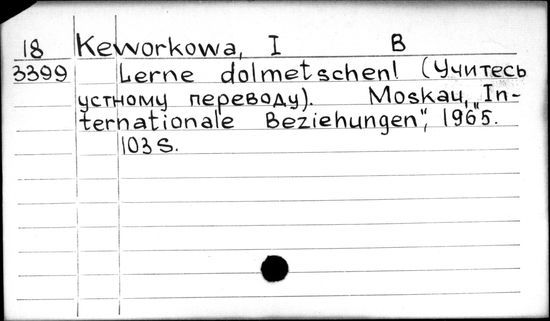 18 Keworkowa, I B
3399 Lerne dolmetschen! (Учитесь
устному переводу). Moskau, „In-
ternationale Beziehungen“, 1965.
103 S.